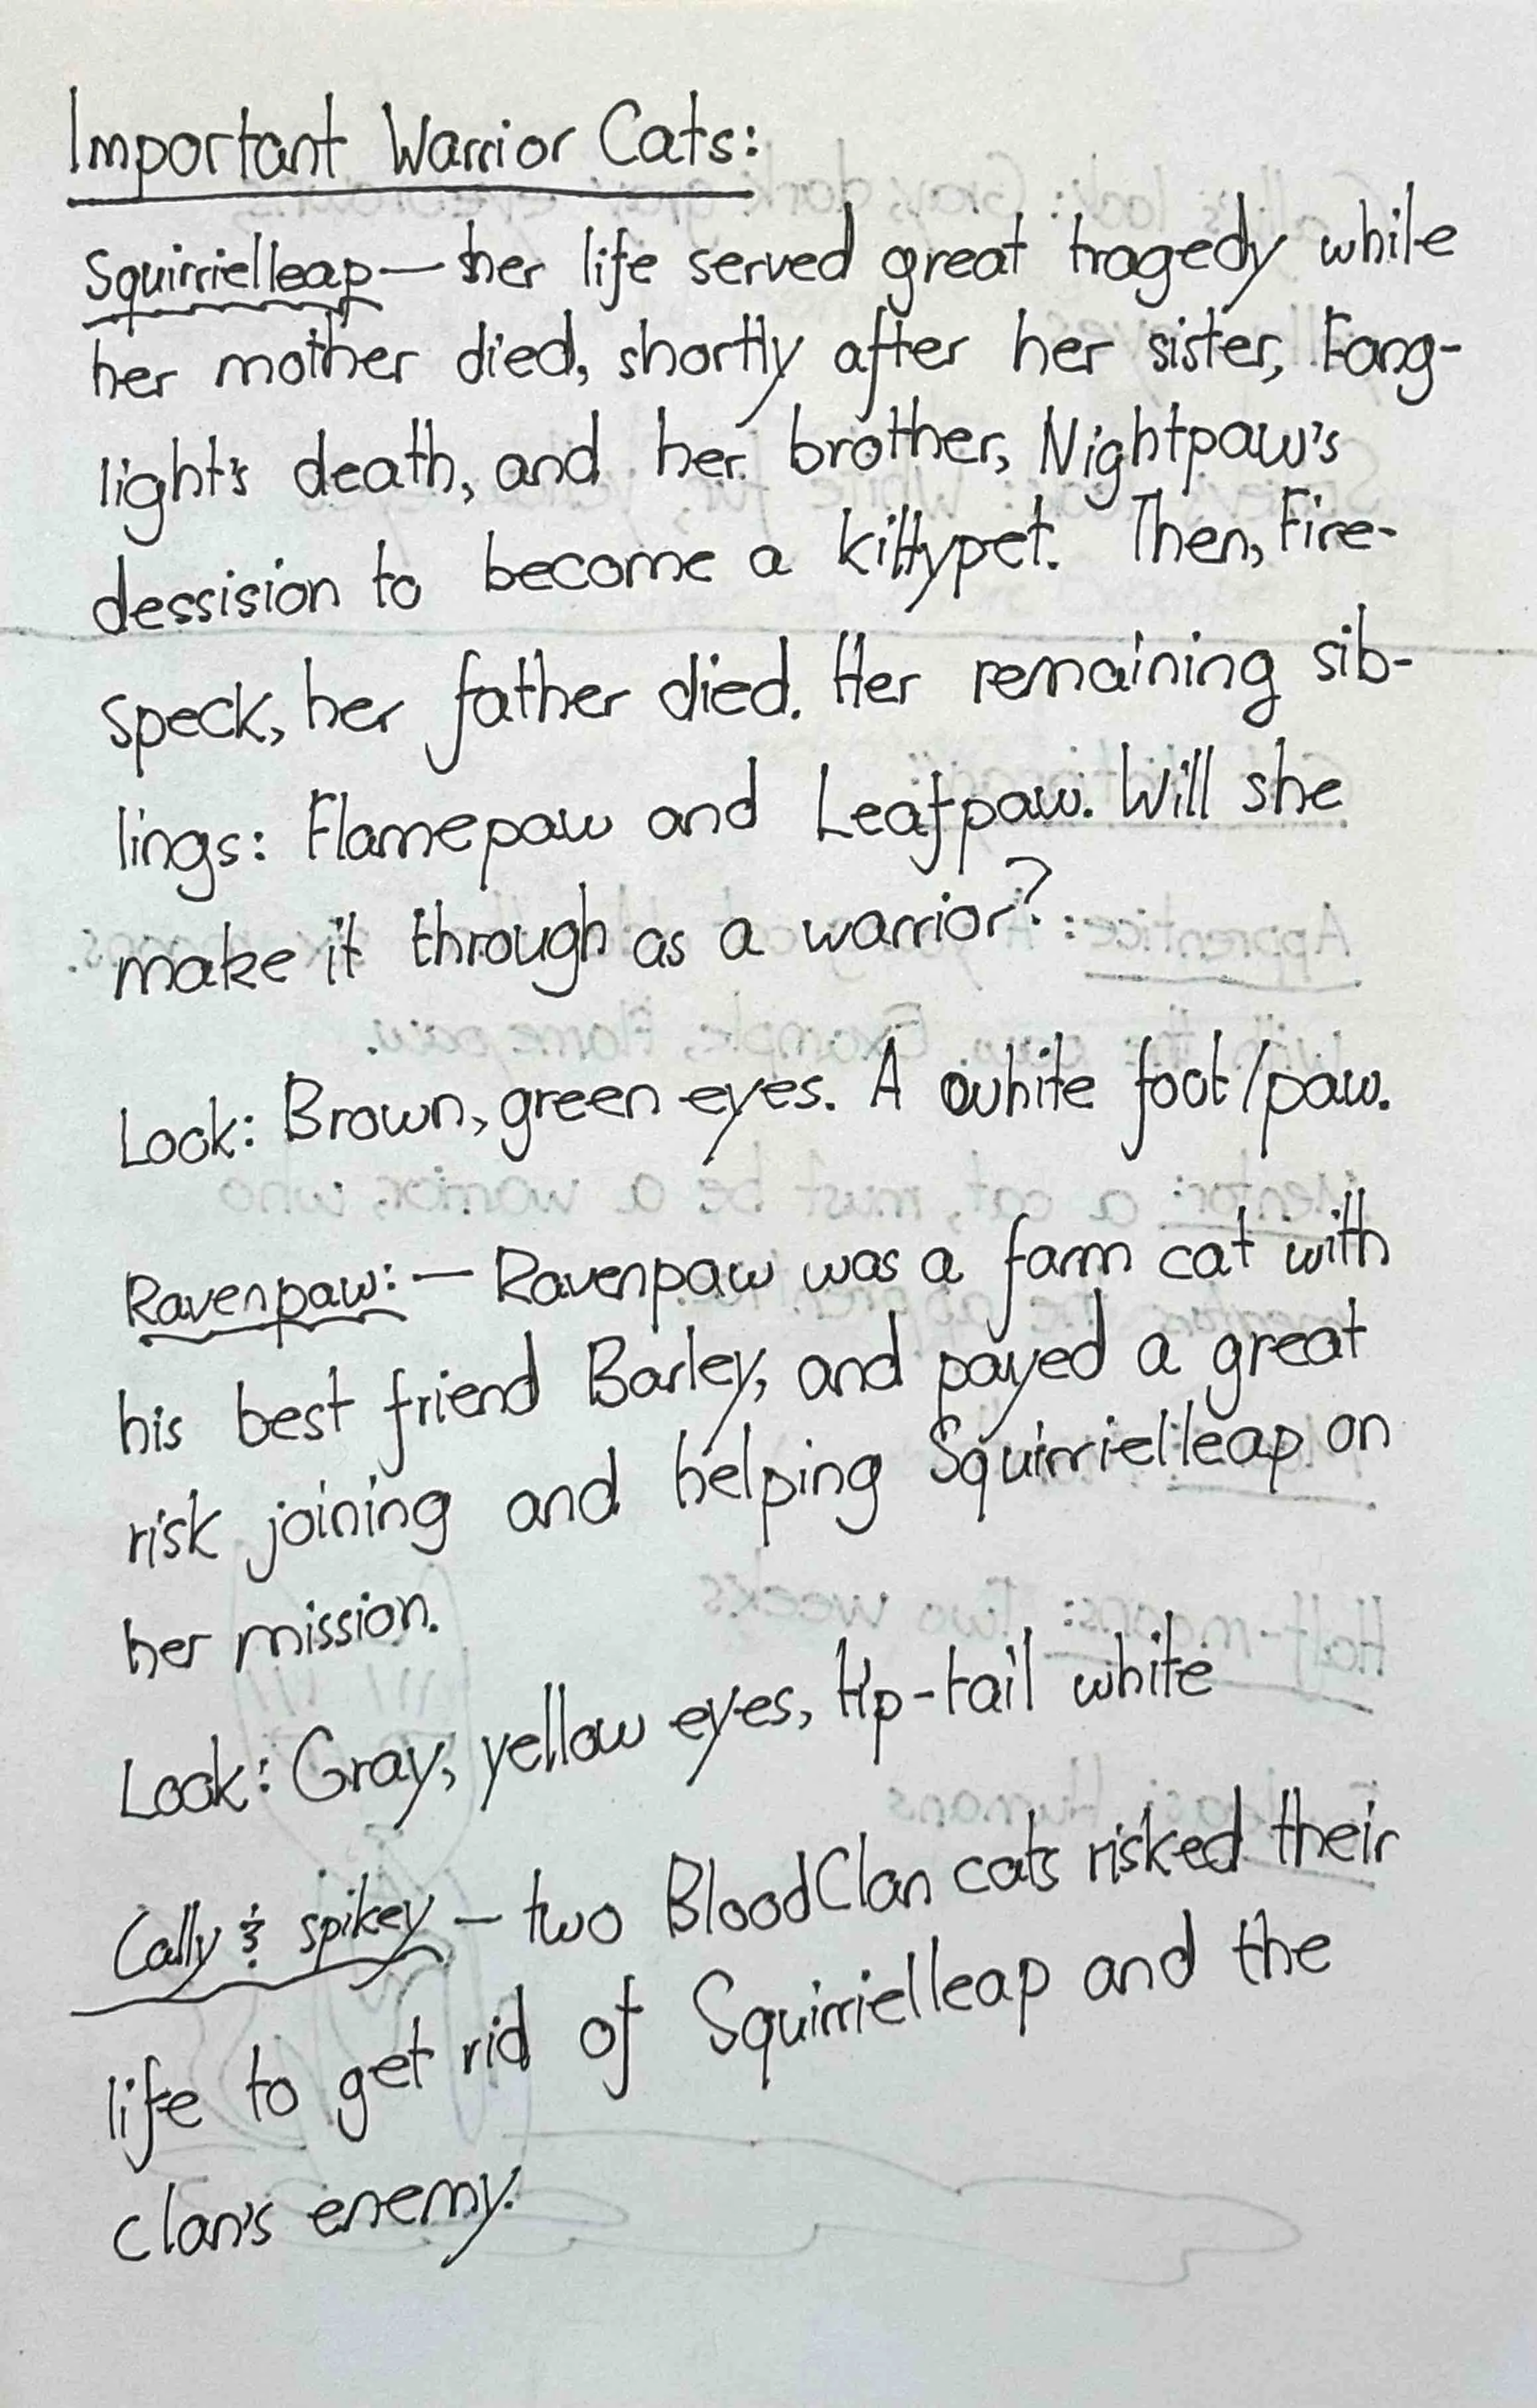 Important Warrior Cats:
Squirrielleap—her life served great tragedy while
her mother died, shortly after her sister, Fang-
light's death, and her brother, Nightpaw's
dessision to become a kittypet. Then, Fire-
speck, her father died. Her remaining sib-
lings: Flamepaw and Leafpaw. Will she
make it through as a warrior?
Look: Brown, green eyes. A white foot/paw.
Ravenpaw:— Ravenpaw was a farm cat with
his best friend Barley, and payed a great
risk joining and helping Squirrielleap on
her mission.
Look: Gray, yellow eyes, tip-tail white
Cally & spikey — two BloodClan cats risked their
life to get rid of Squirrielleap and the
clan's enemy.